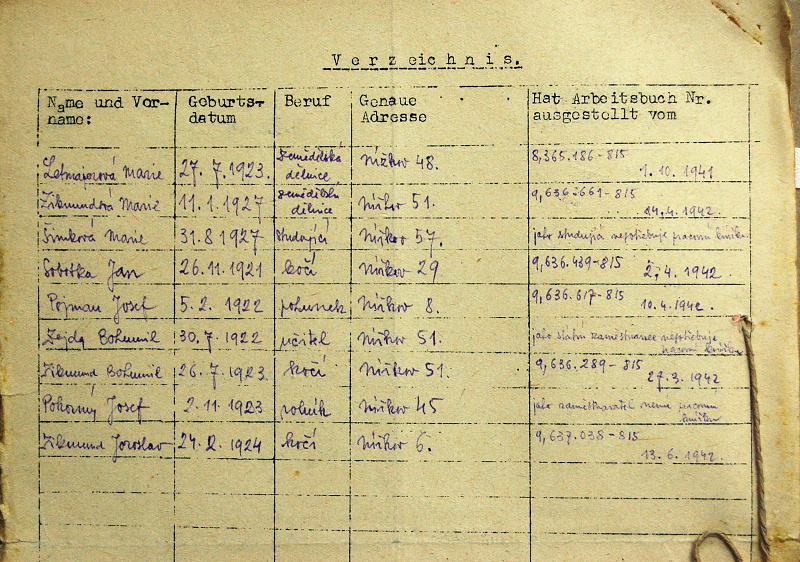 Verzeichnis.
Name und Vor-
name:
Geburts-
datum
Beruf
Genaue
Adresse
Hat Arbeitsbuch Nr.
ausgestellt vom
Marie 27. 7. 1923. zemědělská dělnice Nížkov 48. 8,365.186-815 1. 10. 1941
Zikmundová Marie 11. 1. 1927 zemědělská dělnice Nížkov 51. 9,636.661-815 14. 4. 1942.
Šimková Marie 31. 8 1927 studující Nížkov 57. jako studující nepotřebuje pracovní knížku
Sobotka Jan 26. 11. 1921 kočí Nížkov 29 9,636.439-815 2. 4. 1942.
Pojman Josef 5. 2. 1922 pohunek Nížkov 8. 9,636.617-815 10. 4. 1942.
Zejda Bohumil 30. 7. 1922 učitel Nížkov 51. jako státní zaměstnanec nepotřebuje pracovní knížku
Zikmund Bohumil 26. 7. 1923. kočí Nížkov 51. 9,636.289-815 27. 3. 1942
Pokorný Josef 2. 11. 1923 rolník Nížkov 45 jako zaměstnavatel nemá pracovní knížku
Zikmund Jaroslav 24. 2. 1924 kočí Nížkov 6. 9,637.038-815 13. 6. 1942.